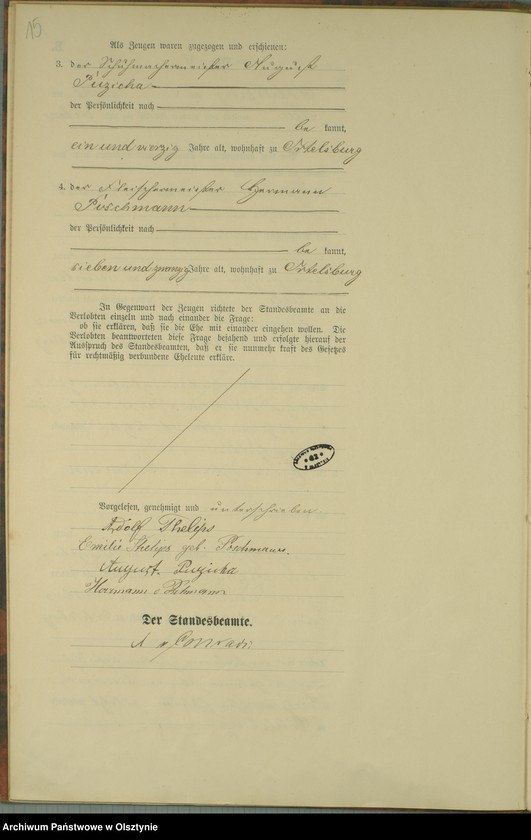 15
Als Zeugen waren zugezogen und erschienen:
3. der Schuhmachermeister August
Puzicha
der Persönlichkeit nach
be kannt,
ein und vierzig Jahre alt, wohnhaft zu Ortelsburg
4. der Fleischermeister Hermann
Poschmann
der Persönlichkeit nach
be kannt,
sieben und zwanzig Jahre alt, wohnhaft zu Ortelsburg
In Gegenwart der Zeugen richtete der Standesbeamte an die
Verlobten einzeln und nach einander die Frage:
ob sie erklären, daß sie die Ehe mit einander eingehen wollen. Die
Verlobten beantworteten diese Frage bejahend und erfolgte hierauf der
Ausspruch des Standesbeamten, daß er sie nunmehr kraft des Gesetzes
für rechtmäßig verbundene Eheleute erkläre.
Vorgelesen, genehmigt und unterschrieben
Adolf Thelips
Emilie Thelips geb. Poschmann.
August Puzicha
Hermann Poschmann
Der Standesbeamte.
Conradi
Archiwum Państwowe w Olsztynie